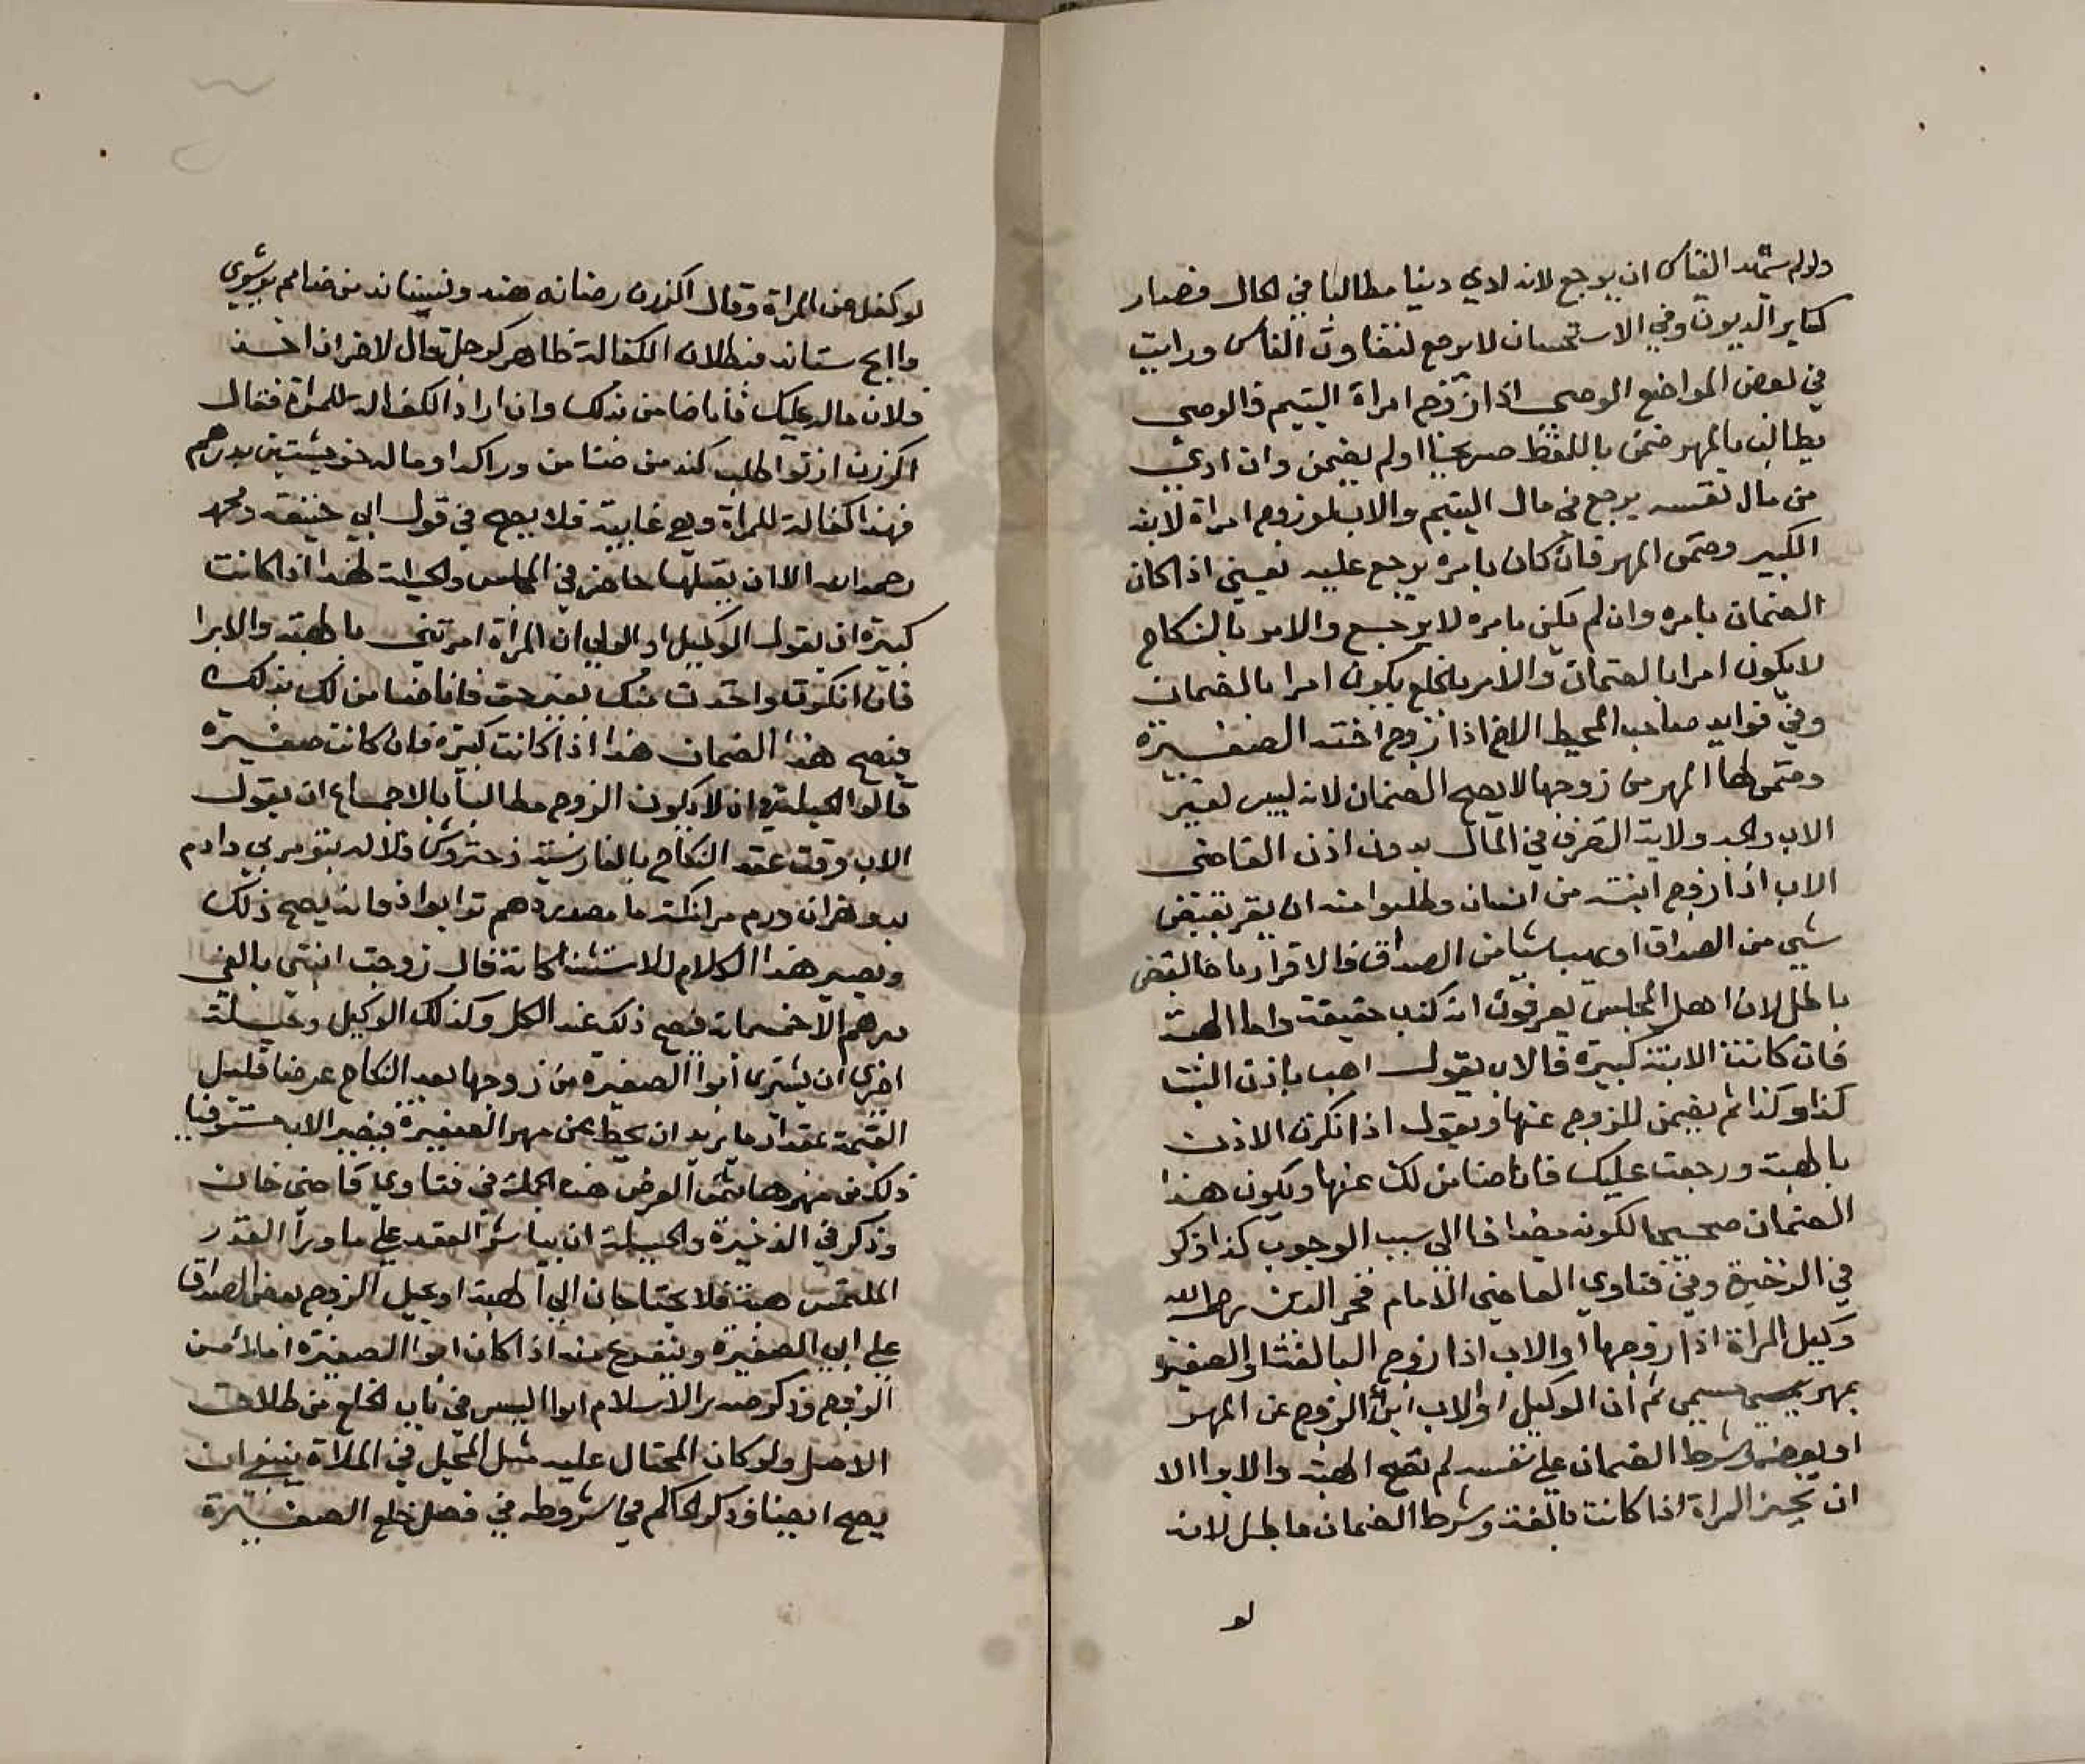 ولو لم يشهد القياس ان يرجع لانه ادي دينا مطالبا في الحال فصار
كساير الديون وفي الاستحسان لا يرجع لتفاوت الناس ورايت
في بعض المواضع الوصي اذا زوج امراة اليتيم فالوصي
يطالب بالمهر ضمن باللفظ صريحا او لم يضمن وان ادي
من مال نفسه يرجع في مال اليتيم والاب لو زوج امراة لابنه
الكبير وضمن المهر فان كان بامره يرجع عليه يعني اذا كان
الضمان بامره وان لم يكن بامره لا يرجع والامر بالنكاح
لا يكون امرا بالضمان والامر بالخلع يكون امرا بالضمان
وفي فوايد صاحب المحيط الاخ اذا زوج اخته الصغيرة
وضمن لها المهر من زوجها لا يصح الضمان لانه ليس لغير
الاب والجد ولاية التصرف في المال بدون اذن القاضي
الاب اذا زوج ابنته من انسان وطلبوا منه ان يقر بقبض
شي من الصداق او يهب شيا من الصداق فالاقرار بالقبض
باطل لان اهل المجلس يعرفون انه كذب حقيقة واما الهبة
فان كانت الابنة كبيرة فالاب يقول اهب باذن البنت
كذا وكذا ثم يضمن للزوج عنها ويقول اذا انكرت الاذن
بالهبة ورجعت عليك فانا ضامن لك عنها ويكون هذا
الضمان صحيحا لكونه مضافا الي سبب الوجوب كذا ذكر
في الذخيرة وفي فتاوي القاضي الامام فخر الدين رحمه الله
وكيل المراة اذا زوجها او الاب اذا زوج البالغة او الصغيرة
بمهر مسمي ثم ان الوكيل او الاب ابرا الزوج عن المهر
او بعضه وشرط الضمان علي نفسه لم تصح الهبة والابرا الا
ان تجيز المراة اذا كانت بالغة وشرط الضمان باطل لانه
لو
لو كفل عن المراة وقال اكر زن رضا نه دهد من ضامنم بر شوي
فبطلان الكفالة ظاهر كرجل قال لاخر ان اخذ
فلان ماله عليك فانا ضامن بذلك وان اراد الكفالة للمراة فقال
اكر زن از تو طلب كند من ضامن
فهذا كفالة للمراة وهي غايبة فلا يصح في قول ابي حنيفة ومحمد
رحمهما الله الا ان يقبلها حاضر في المجلس والحيلة لهذا اذا كانت
كبيرة ان يقول الوكيل او الولي ان المراة امرتني بالهبة والابرا
فان انكرت واخذت منك بغير حق فانا ضامن لك بذلك
فيصح هذا الضمان هذا اذا كانت كبيرة فان كانت صغيرة
قالوا الحيلة في ان لا يكون الزوج مطالبا بالاجماع ان يقول
الاب وقت عقد النكاح بالفارسية دختر فلانه بتو بزني دادم
بدو هزار درم فانه يصح ذلك
ويصير هذا الكلام للاستثنا كانه قال زوجت ابنتي بالفي
درهم الا خمسماية فيصح ذلك عند الكل وكذلك الوكيل وحيلة
اخري ان يشتري ابوا الصغيرة من زوجها بعد النكاح عرضا قليل
القيمة بمقدار ما يريد ان يحط عن مهر الصغيرة فيصير الاب مستوفيا
ذلك من مهرها بثمن العرض هذه الجملة في فتاوي قاضي خان
وذكر في الذخيرة والحيلة ان يباشر العقد علي ما ورا القدر
الملتمس هبته فلا يحتاجان الي الهبة او يحيل الزوج بعض الصداق
علي ابي الصغيرة ويتفرغ منه اذا كان ابوا الصغيرة املا من
الزوج وذكر صدر الاسلام ابوا اليسر في باب الخلع من طلاق
الاصل ولو كان المحتال عليه مثل المحيل في الملاة ينبغي ان
يصح ايضا وذكر الحاكم في شروطه في فصل خلع الصغيرة